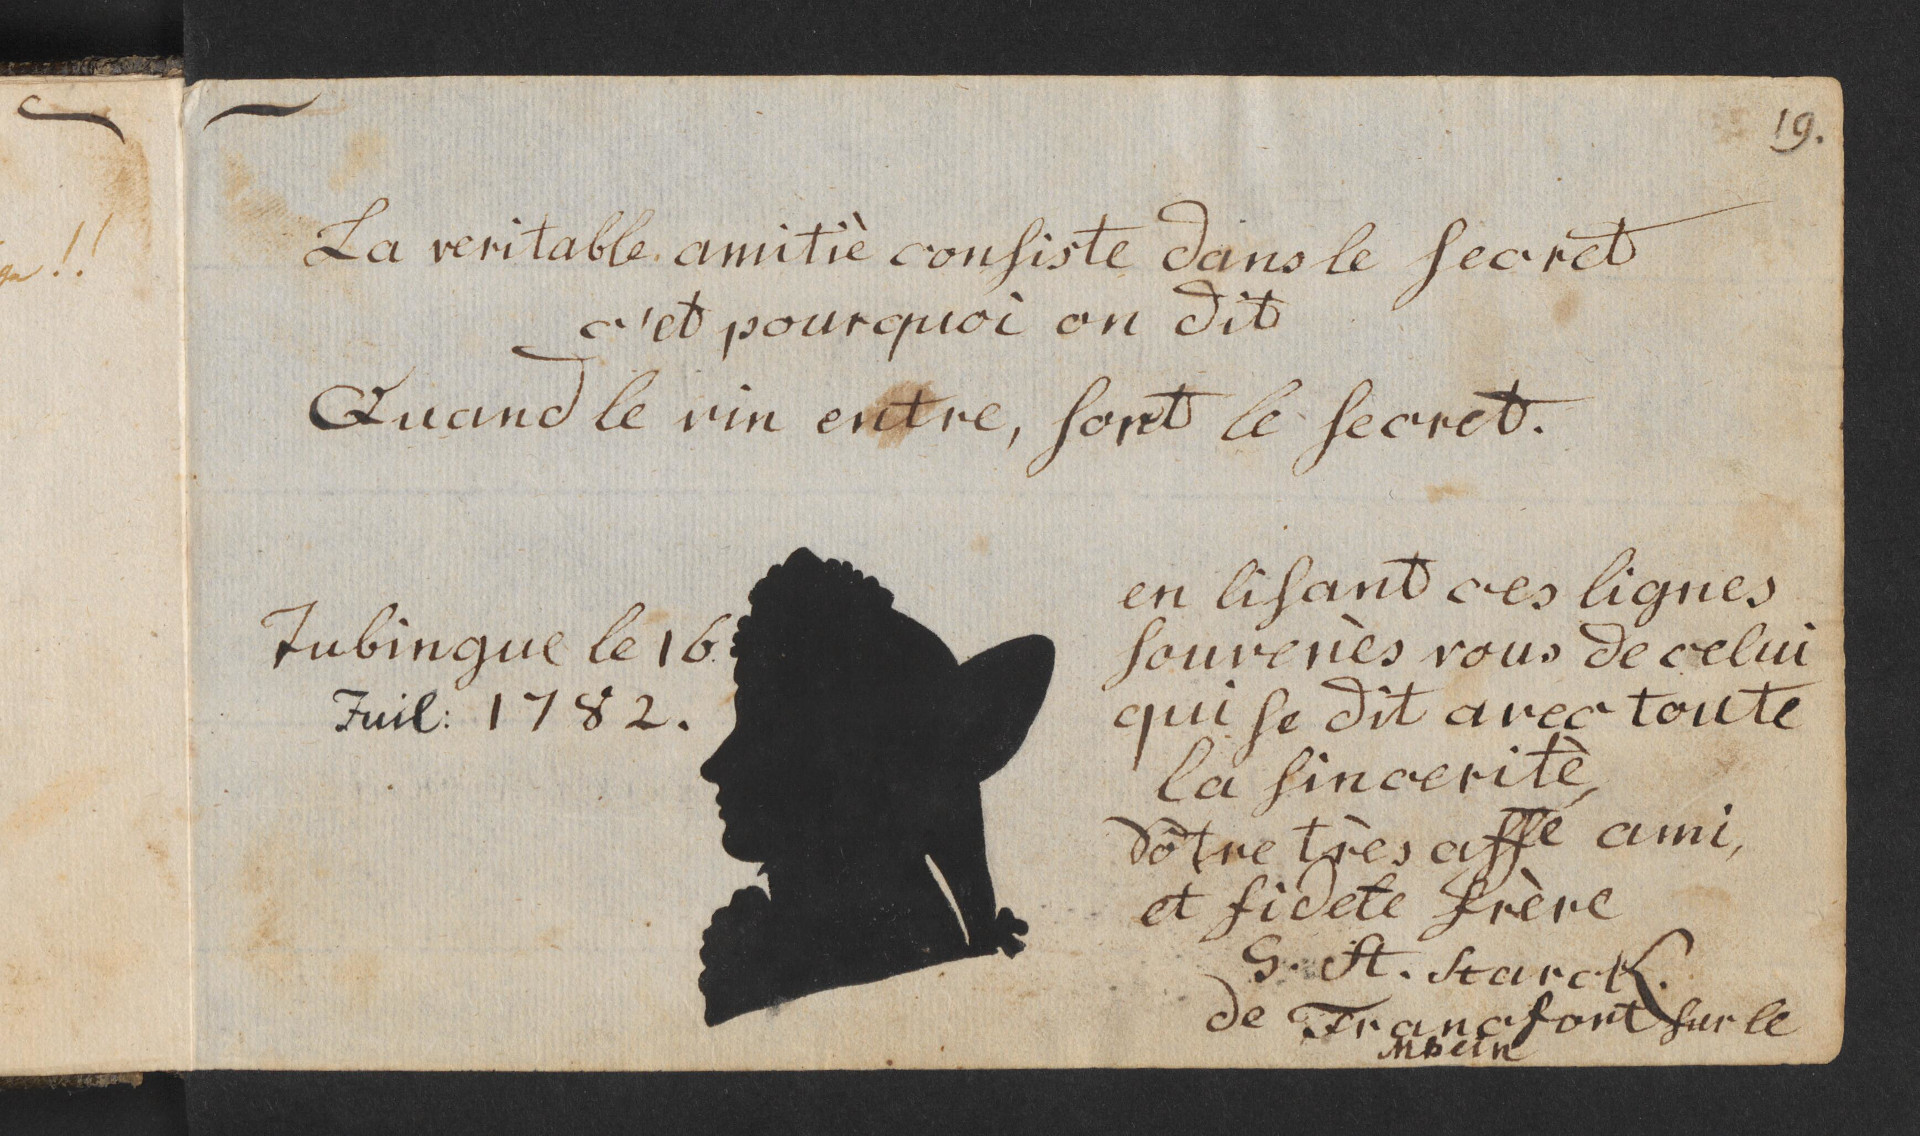 19.
La veritable amitiè consiste dans le secret
c'et pourquoi on dit
Quand le vin entre, sont le secret.
Tubingue le 16
Juil: 1782.
en lisant ces lignes
souvenès vous de celui
qui se dit avec toute
la sinceritè,
Vôtre très affé ami,
et fidele frère
Starck.
de Francfort sur le